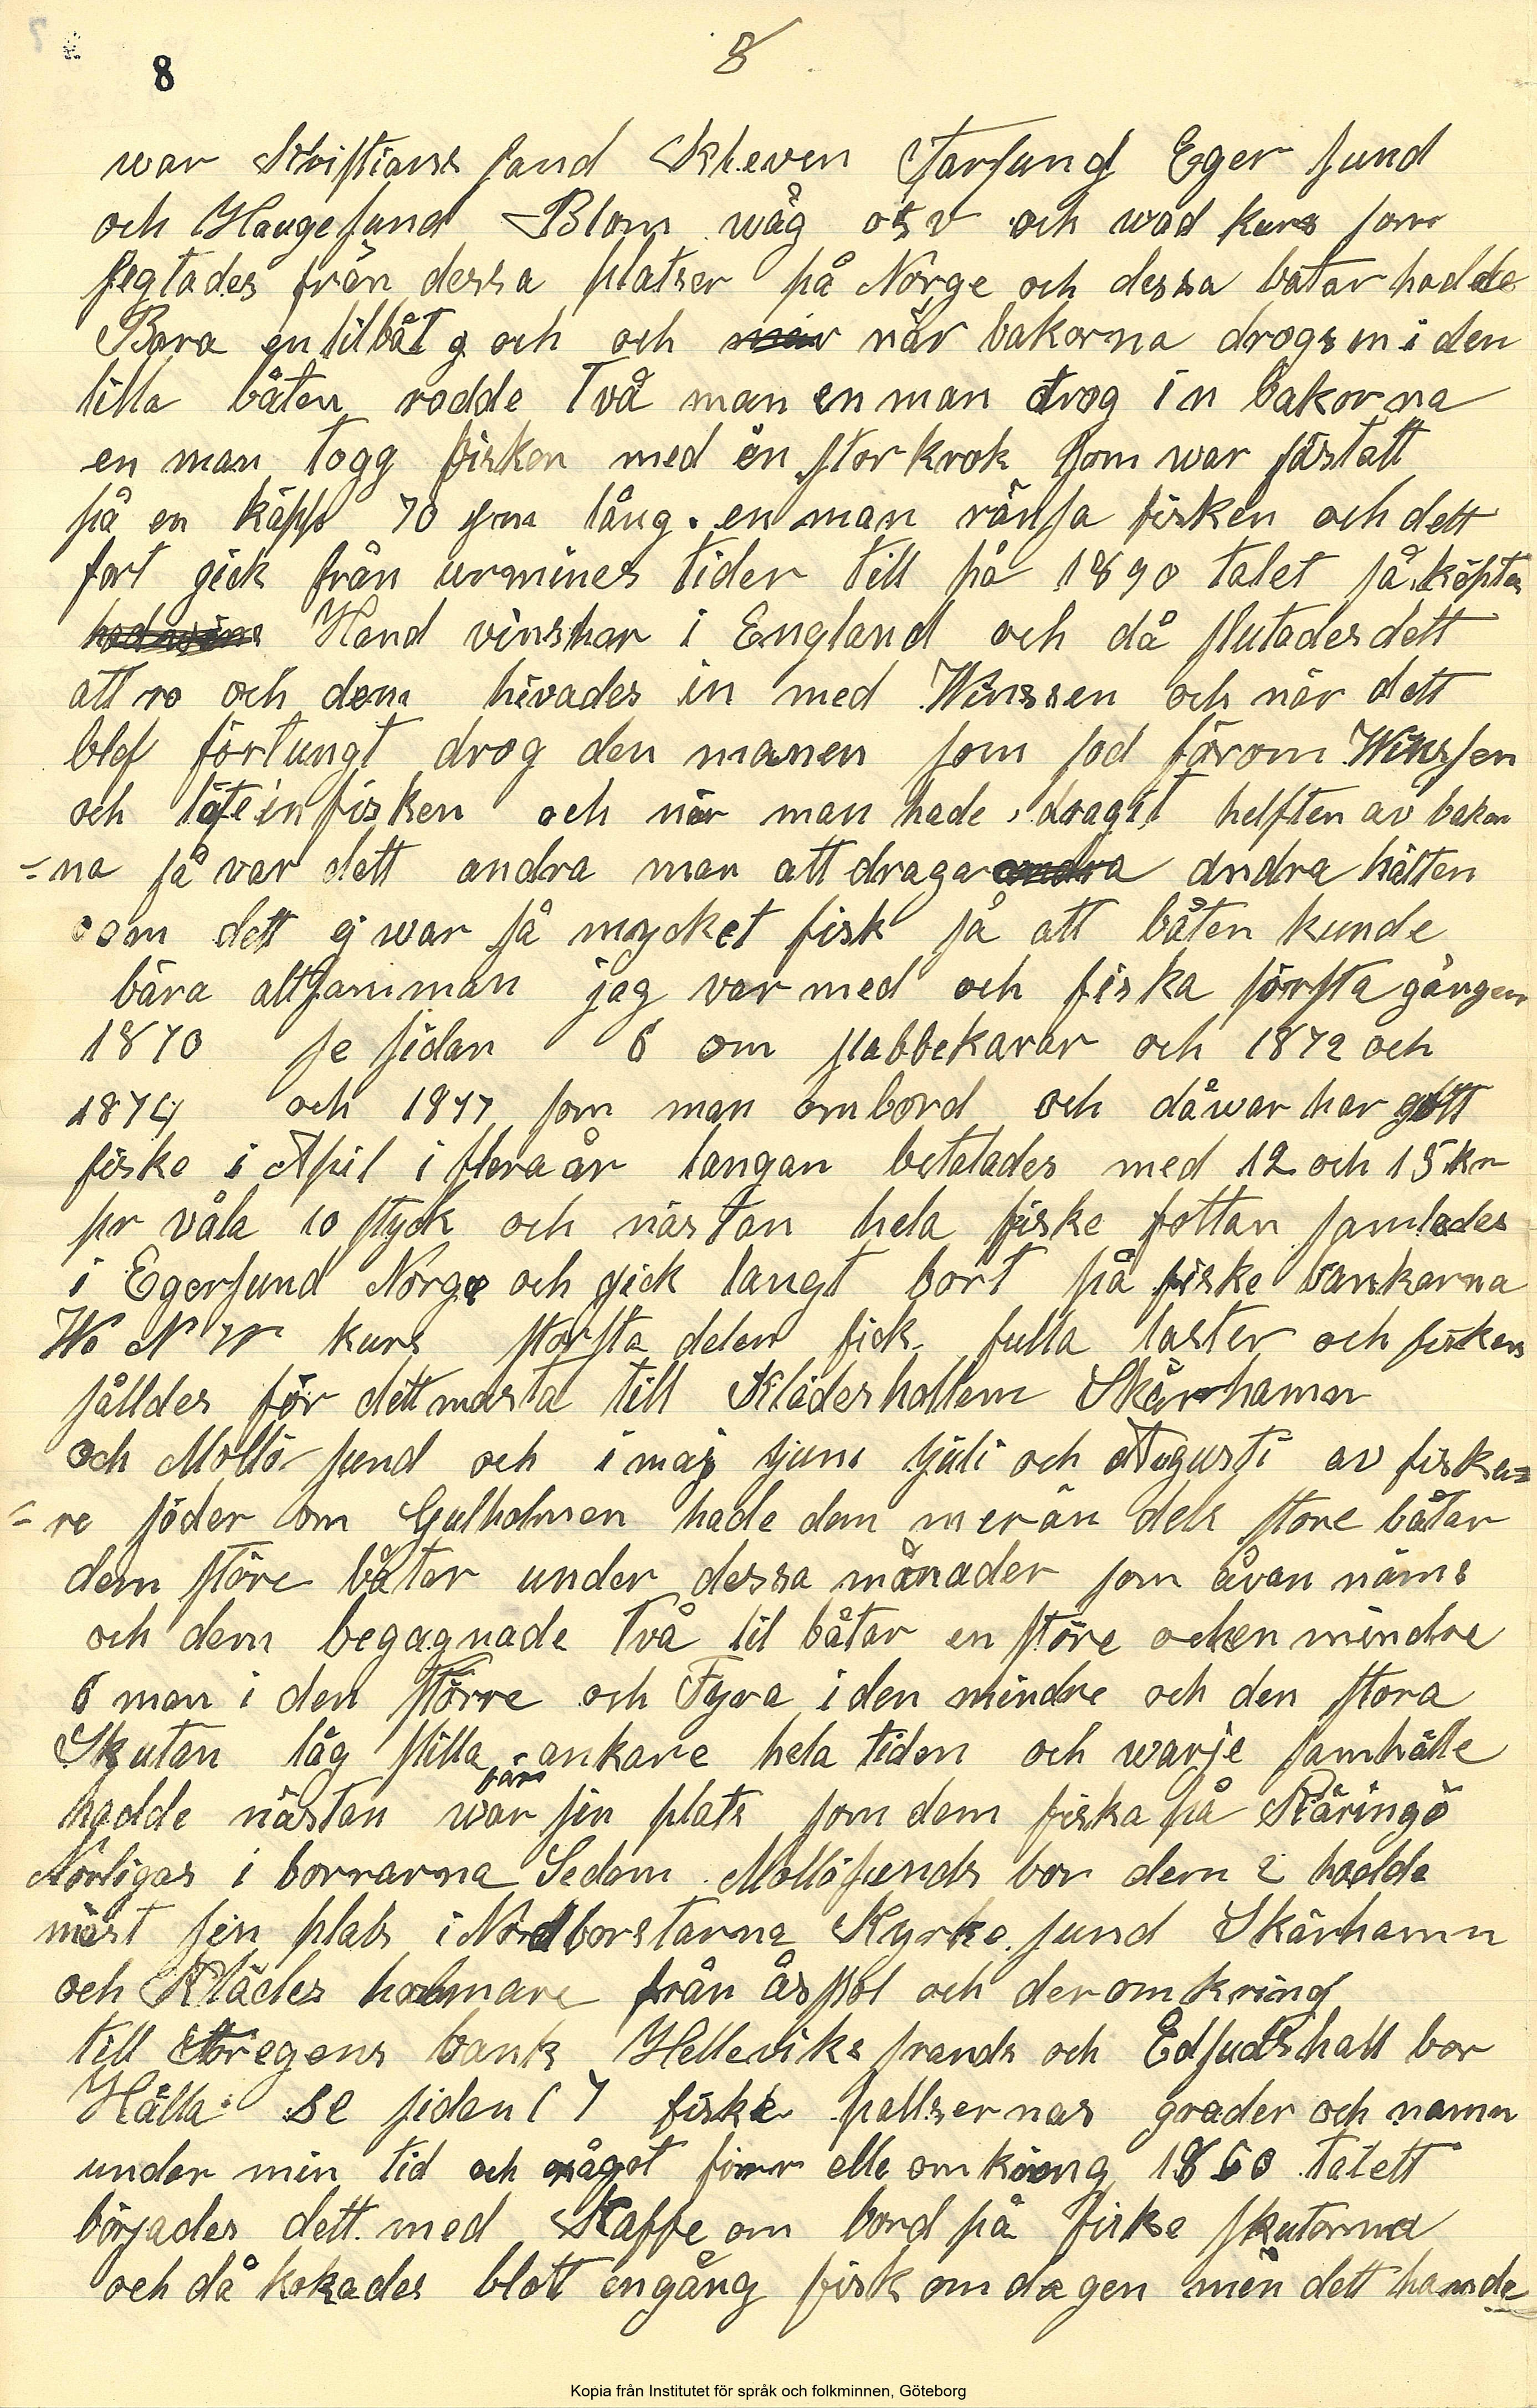 8
8
war Kristians sand Kleven Farsund Eger sund
och Haugesund Blom wåg osv och wad kurs som
segtades från dessa platser på Norge och dessa båtar hadde
Bara en lilbåt g och och när bakorna drogs in i den
lilla båten rodde Två man en man drog in bakorna
en man togg fisken med en stor krok som war fästatt
på en käpp 70 lång. en man ränsa fisken och dett
fort gick från urmines tider till på 1890 talet så köptes
Hand vinshar i England och då slutades dett
att ro och dem hivades in med Winssen och när dett
blef förtungt drog den manen som sod förom Winssen
och in fisken och när man hade dragit helften av bakor
=na så var dett andra man att draga andra hälten
oom dett ej war så mycket fisk så att båten kunde
bära altsamman jag var med och fiska första gången
1870 se sidan 6 om slabbekarar och 1872 och
1874 och 1877 som man ombord och då war har gott
fiske i Apil i flera år langan betalades med 12 och 15 kr
pr våla 10 styck och nästan hela fiske fottan samlades
i Egersund Norge och gick langt bort på fiske bankarna
W N W kurs största delen fick fulla laster och fisken
sålldes för dett masta till Klädeshollem Skärhamn
och Mollö sund och i maj juni juli och Augusti av fiska=
=re söder om Gulholmen hade dem mer än dels store båtar
dem störe båtar under dessa månader som åvan näms
och dem begagnade Två lil båtar en störe och en mindre
6 man i den större och Fyra i den mindre och den stora
Skutan låg stilla ankare hela tiden och warje samhälle
hadde nästan wår sin plats som dem fiska på Käringö
Nörligas i borrarna Sedom Mollösunds bor dem 2 hadde
mäst sin plats i Nordborstarna Kyrke sund Skärhamn
och Klädes holmare från åspol och deromkring
till Storegens bank Helleviks strands och Edsuds hall bor
Hälla se sidan (7 fiske pallsernas grader och namn
under min tid och något förr elle omkring 1860 talett
börjades dett med Kaffe om bord på fiske skutorna
och då kokades blott engång fisk om dagen men dett hande
Kopia från Institutet för språk och folkminnen, Göteborg